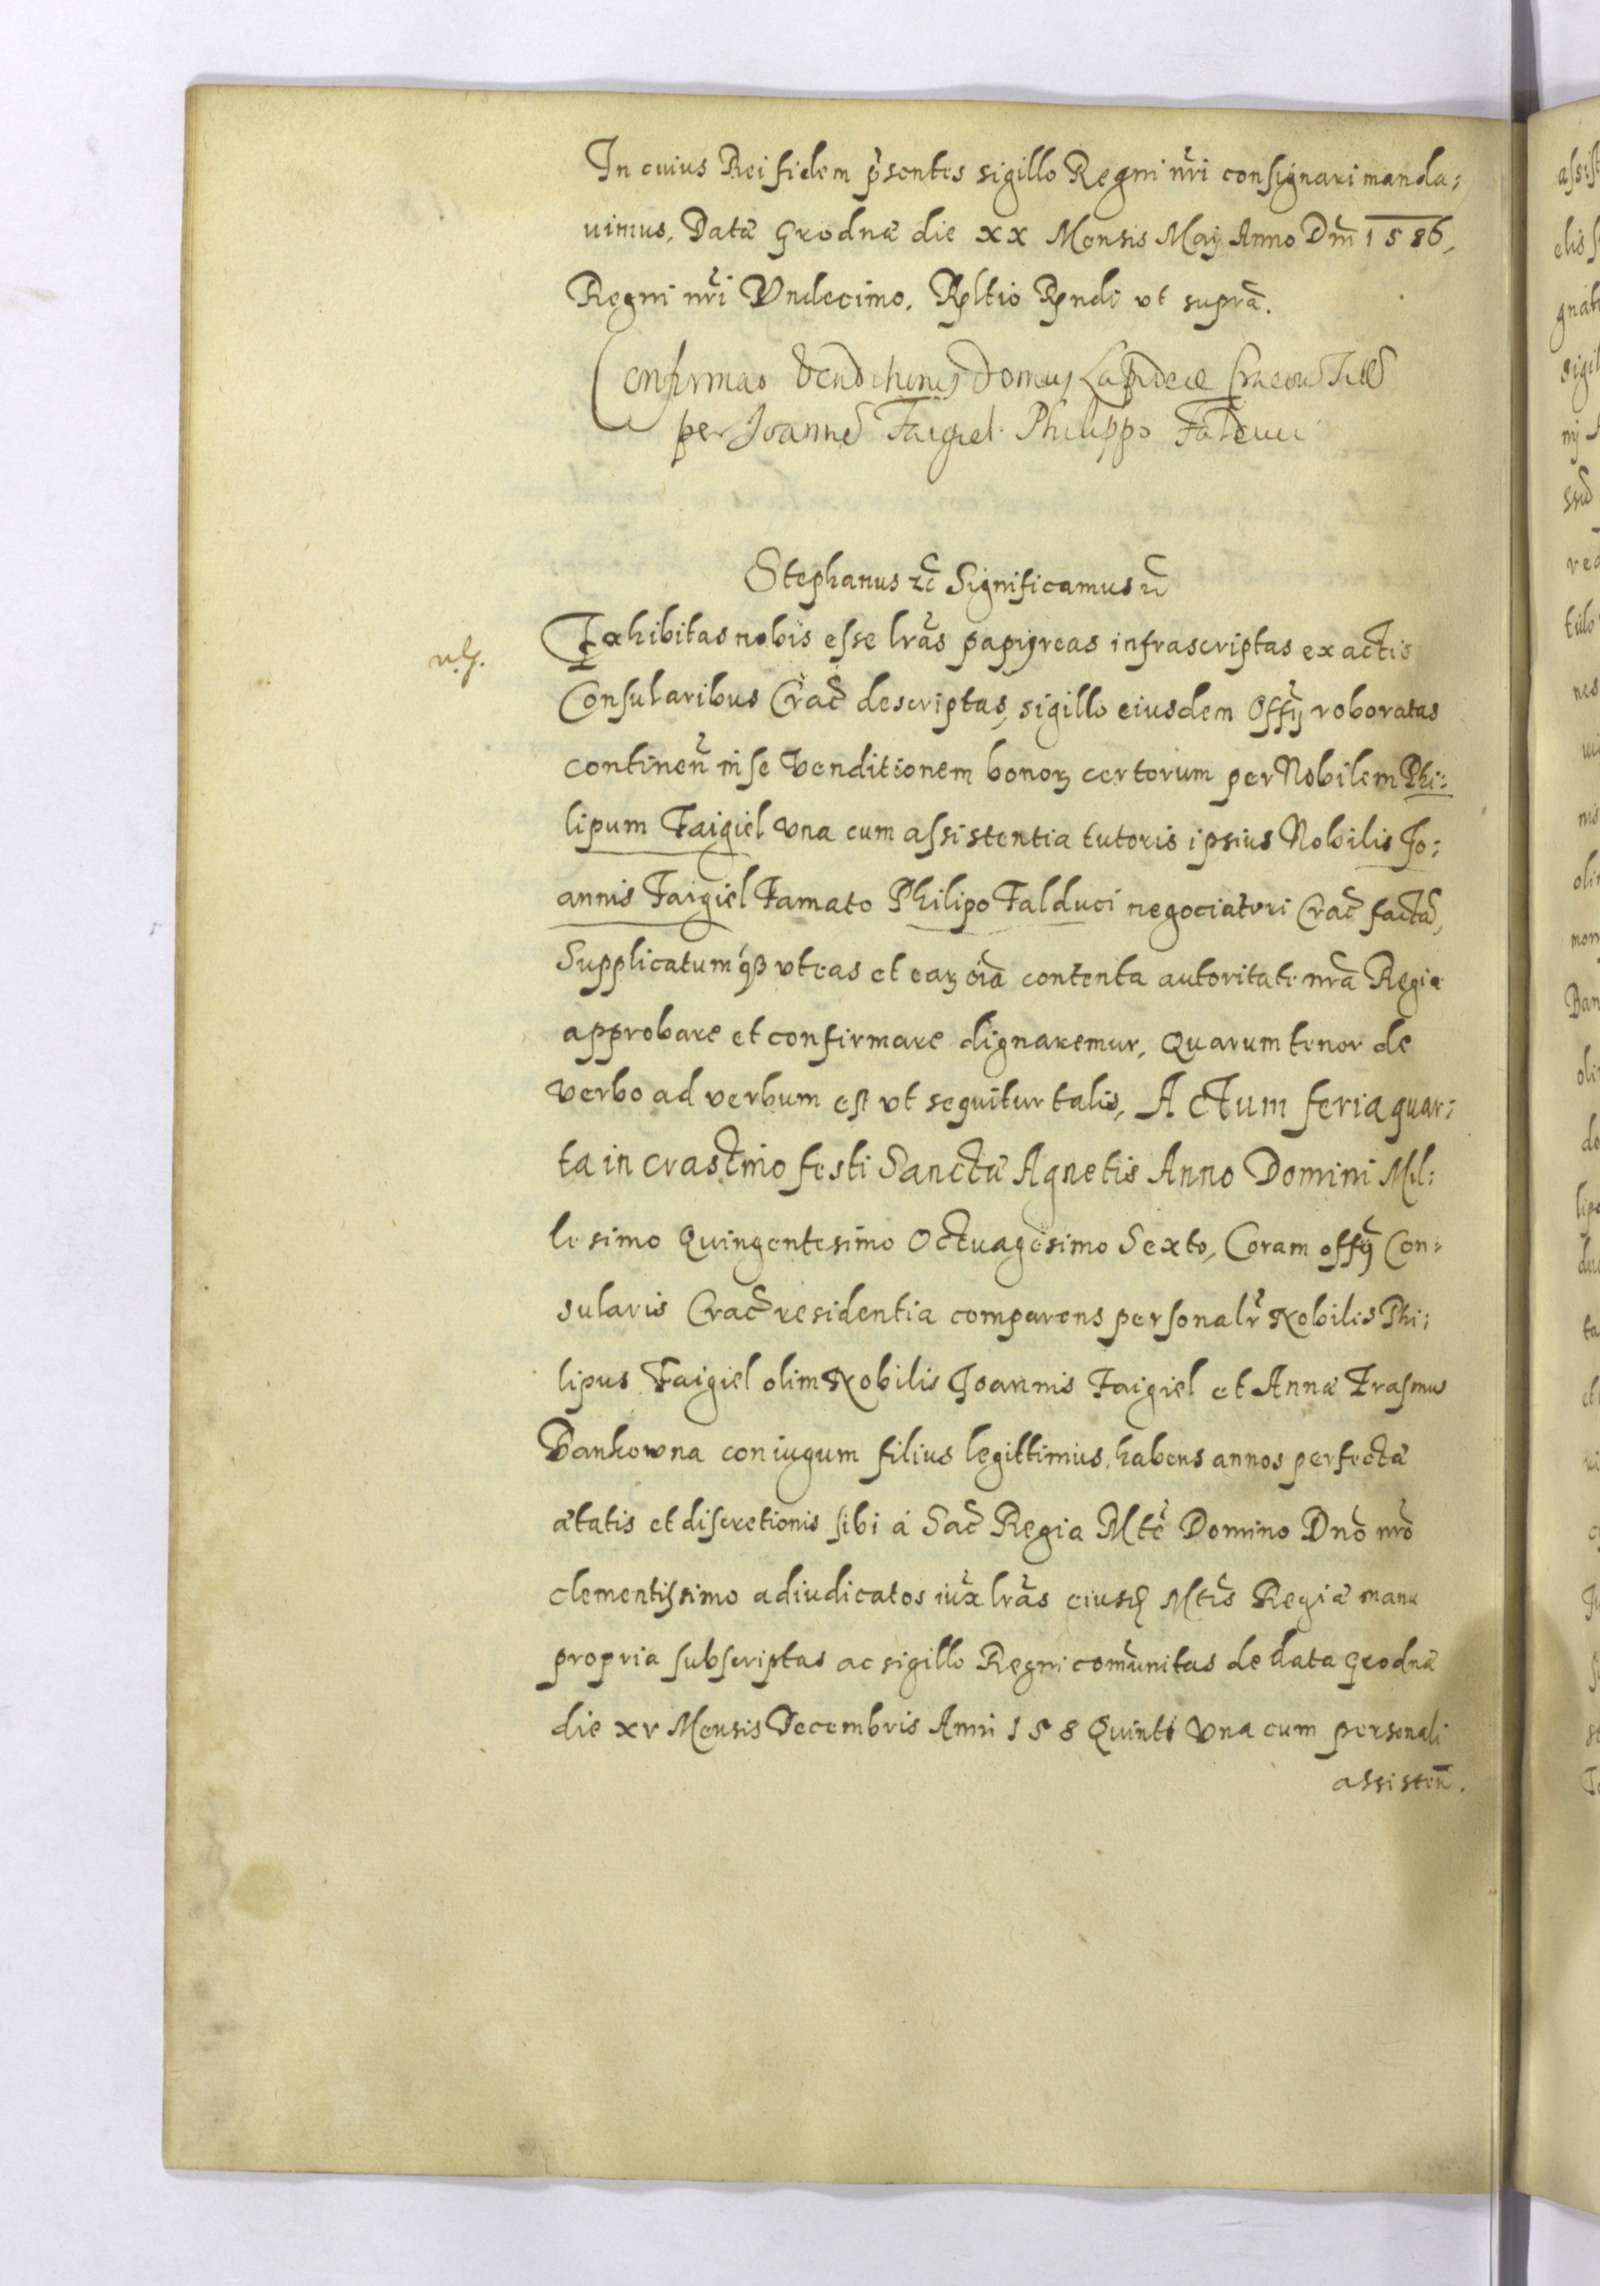 In cuius Rei fidem p̃sentes sigillo Regni nr̃i consignari manda:
uimus, Datæ Grodnæ die xx Mensis Maij Anno Dñi 1586,
Regni nr̃i Vndecimo. Rẽltio Rẽndi vt supra.
Confirmao Venditionis Domus Lapideæ Cracouiæ
per Joannẽ Faigiel Philippo Falduci
Stephanus ꝛc̃ Significamus ꝛc̃
Exhibitas nobis esse lr̃as papijreas infrascriptas ex actis
Consularibus Crac̃ descriptas, sigillo eiusdem Offij̃ roboratas
continen̄ in se Venditionem bonoꝝ certorum per Nobilem Phi:
lipum Faigiel vna cum assistentia tutoris ipsius Nobilis Jo:
annis Faigiel Famato Philipo Falduci negociatori Crac̃ factã,
Supplicatumqꝫ vt eas et eaꝝ oĩa contenta autoritate nr̃a Regia
approbare et confirmare dignaremur, Quarum tenor de
verbo ad verbum est vt sequitur talis, Actum feria quar:
ta in crastino festi Sanctæ Agnetis Anno Domini Mil:
lesimo Quingentesimo Octuagesimo Sexto, Coram offij̃ Con:
sularis Crac̃ residentia comparens personalr̃ Nobilis Phi:
lipus Faigiel olim Nobilis Joannis Faigiel et Annæ Erasmus
Bankowna coniugum filius legittimus, habens annos perfectæ
ætatis et discretionis sibi à Sac̃ Regia Mtẽ Domino Dnõ nr̃o
clementissimo adiudicatos iux̃ lr̃as eiusdꝫ Mtĩs Regiæ manu
propria subscriptas ac sigillo Regni com̃unitas de data Grodnæ
die xv Mensis Decembris Anni 158 Quinti vna cum personali
assisten̄.